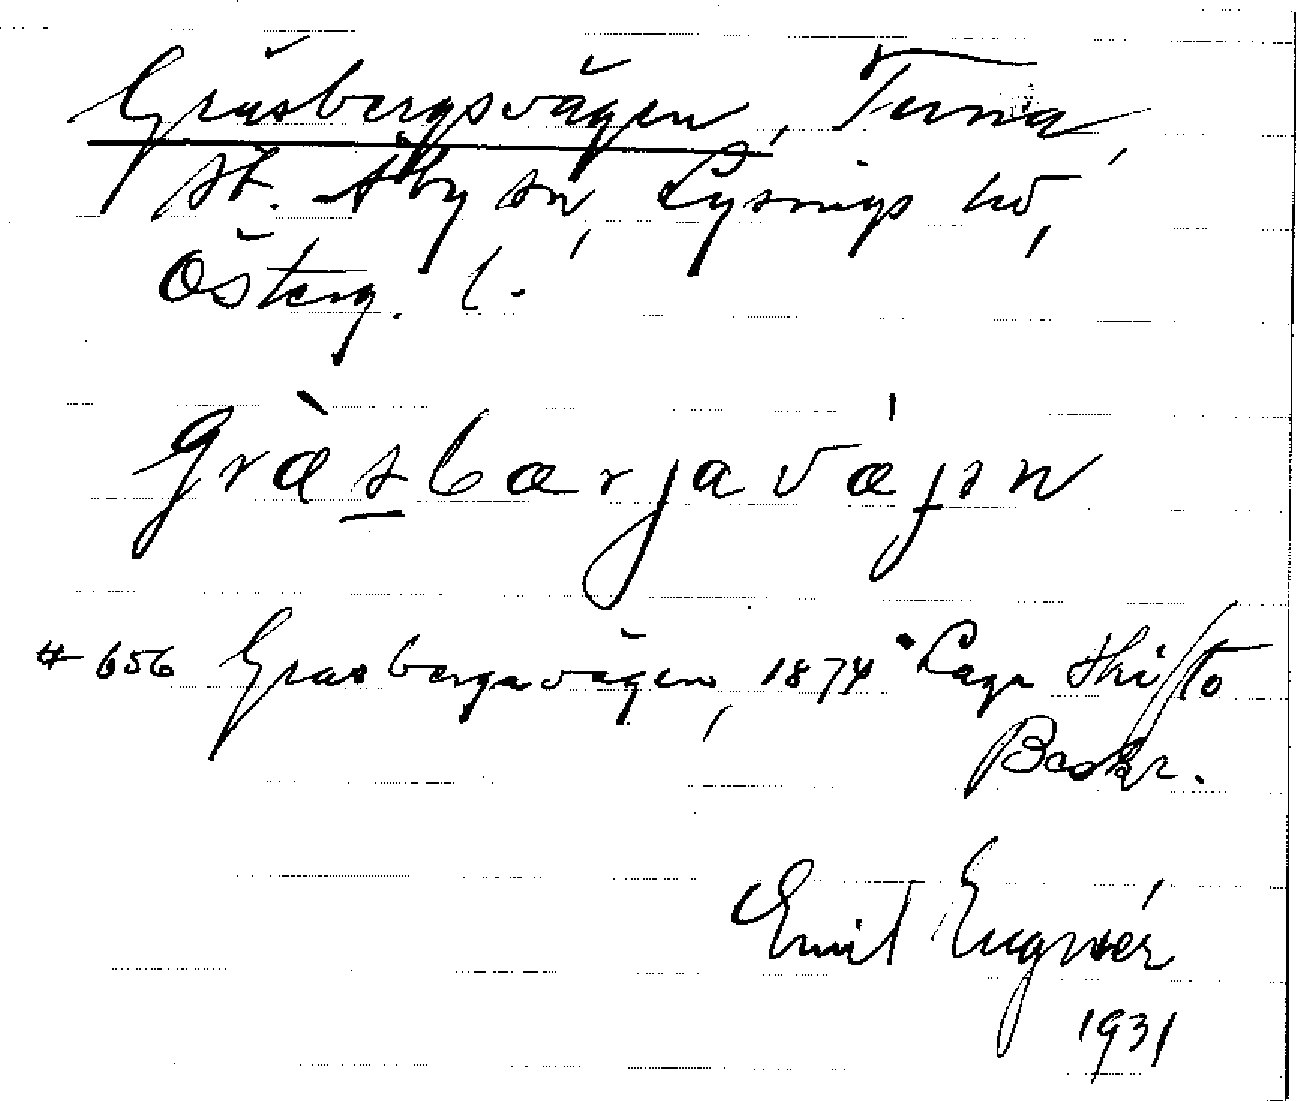 Gräsbergsvägen, Tuna,
St. Åby sn, Lysings hd,
Österg. l.
Græ̀sbærjavǽjən
# 656 Gräsbergavägen, 1874 Laga Skifte
Beskr.
Emil Eugnér
1931